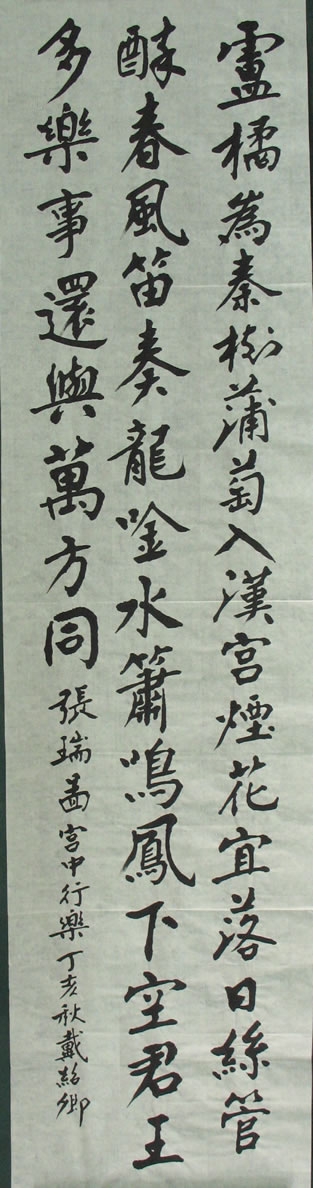 盧橘為秦樹蒲萄入漢宮煙花宜落日絲管
醉春風笛奏龍唫水簫鳴鳳下空君王
多樂事還與萬方同張瑞啚宮中行樂丁亥秋戴紹卿